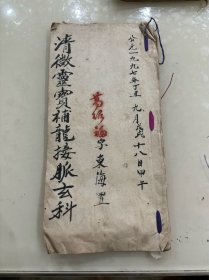 公元一九九七年丁丑九月十八日甲午
葛绍福字東海置
清微靈寶補龍接脈玄科